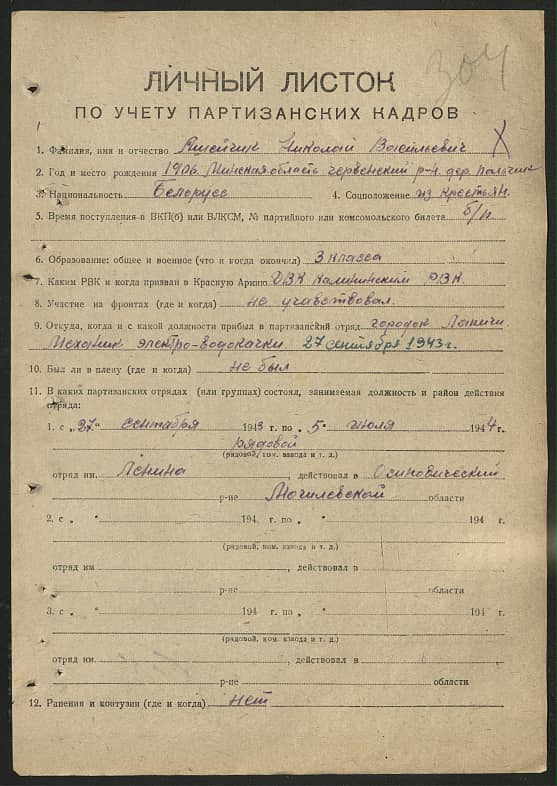 304
ЛИЧНЫЙ ЛИСТОК
ПО УЧЕТУ ПАРТИЗАНСКИХ КАДРОВ
1. Фамилия, имя и отчество Николай Васильевич
2. Год и место рождения 1906. Минская область червенский р-н. дер.
3. Национальность Белорусс 4. Соцположение из крестьян.
5. Время поступления в ВКП(б) или ВЛКСМ, № партийного или комсомольского билета б/п
6. Образование: общее и военное (что и когда окончил) 3 класса
7. Каким РВК и когда призван в Красную Армию Калининский РВК.
8. Участие на фронтах (где и когда) не учавствовал.
9. Откуда, когда и с какой должности прибыл в партизанский отряд городок Лапичи
Механик электро-водокачки 27 сентября 1943 г.
10. Был ли в плену (где и когда) не был
11. В каких партизанских отрядах (или группах) состоял, занимаемая должность и район действия
отряда:
1. с „27“ сентября 1943 г. по „5“ июля 1944 г.
рядовой
(рядовой, ком. взвода и т. д.)
отряд им. Ленина, действовал в Осиповический
р-не Могилевской области
2. с „ “ 194 г. по „ “ 194 г.
(рядовой, ком. взвода и т. д.)
отряд им , действовал в
р-не области
3. с „ “ 194 г. по „ “ 194 г.
(рядовой, ком. взвода и т. д.)
отряд им. , действовал в
р-не области
12. Ранения и контузии (где и когда) нет